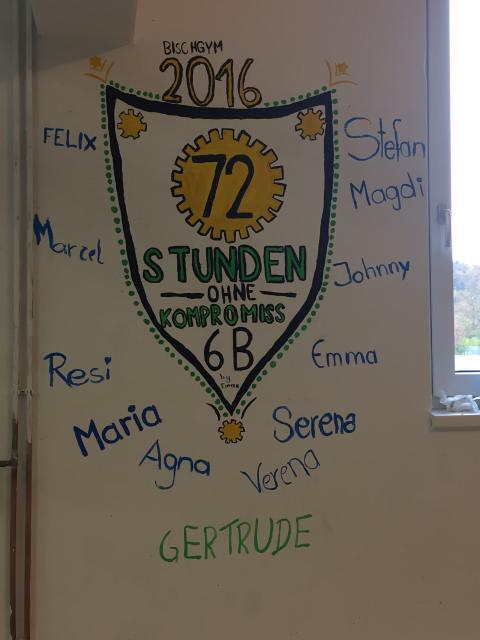 BISCHGYM
2016
72
STUNDEN
OHNE
KOMPROMISS
6B
by
Emma
FELIX
Marcel
Resi
Maria
Agna
Verena
Serena
Emma
Johnny
Magdi
Stefan
GERTRUDE